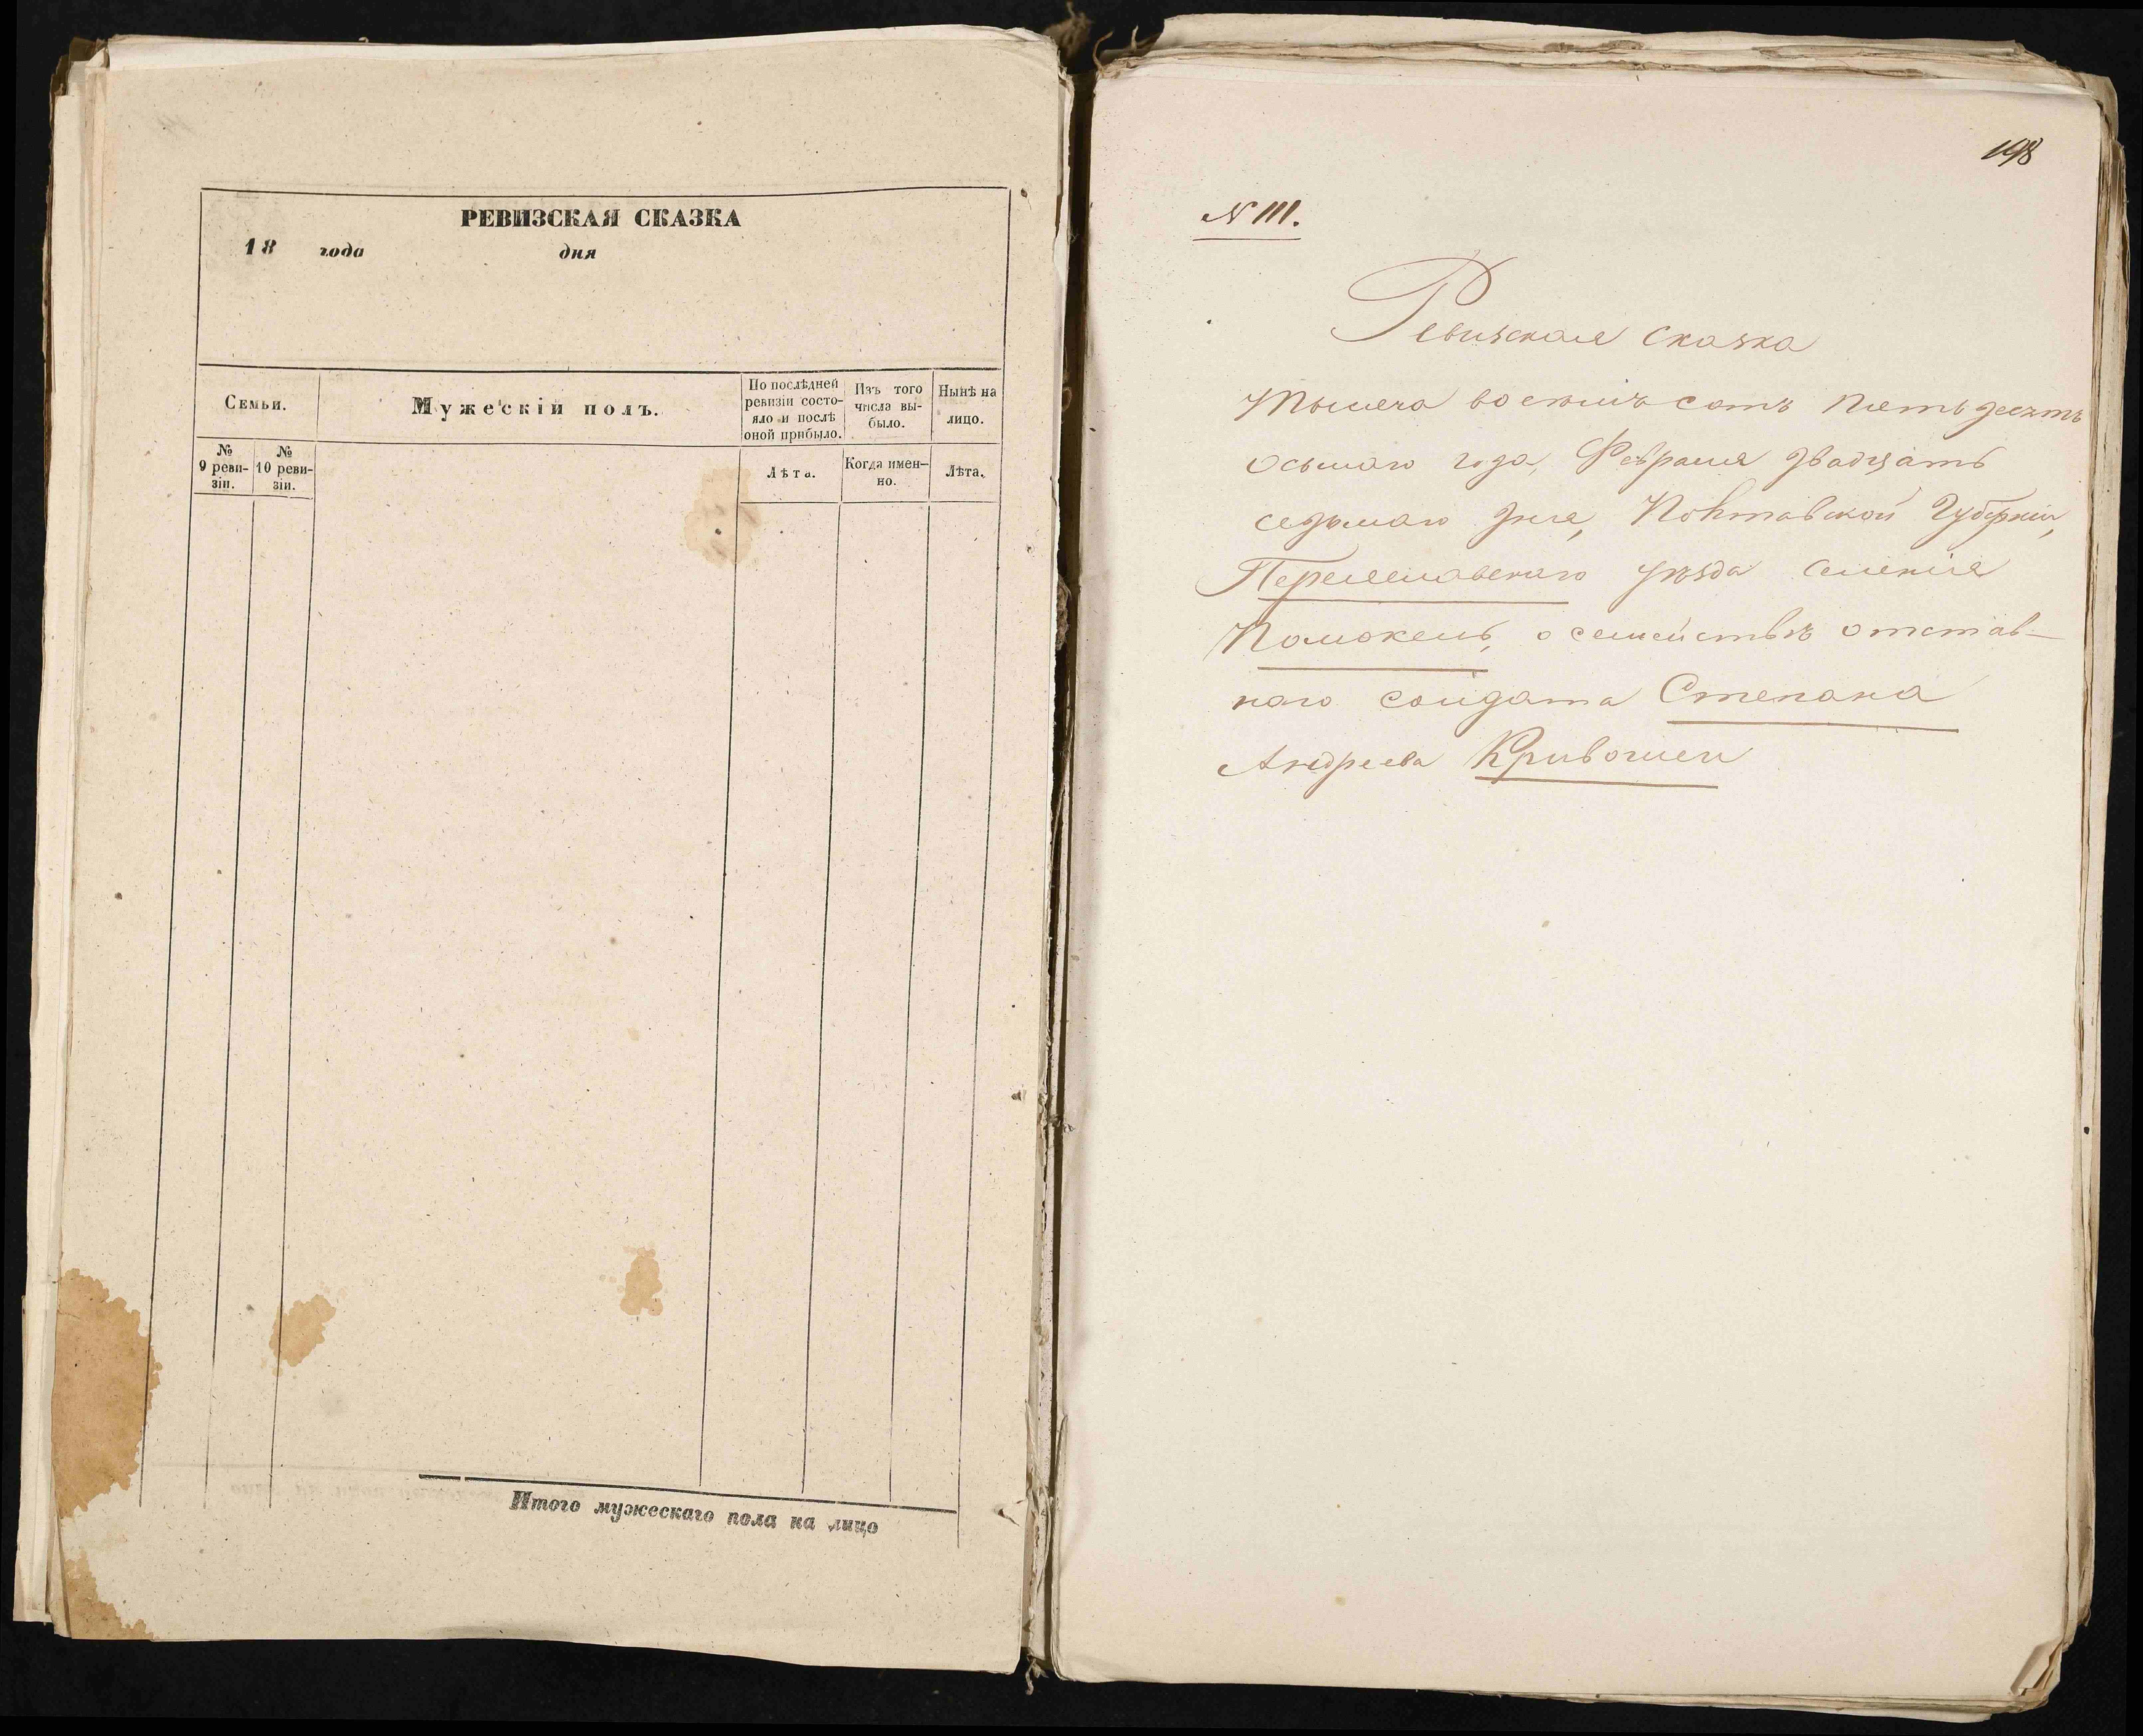 РЕВИЗСКАЯ СКАЗКА
18 года дня
Семьи.
Мужескій полъ.
По послѣдней
ревизіи состо-
яло и послѣ
оной прибыло.
Изъ того
числа вы-
было.
Нынѣ на
лицо.
№
9 реви-
зіи.
№
10 реви-
зіи.
Лѣта.
Когда имен-
но.
Лѣта.
Итого мужескаго пола на лицо
198
N 111.
Ревизская сказка
Тысяча восемьсотъ пятьдесятъ
осьмаго года, Февраля двадцать
седьмаго дня, Полтавской Губерніи,
Переяславскаго уѣзда селенія
Помокель, о семействѣ отстав-
наго солдата Степана
Андреева Кривошеи